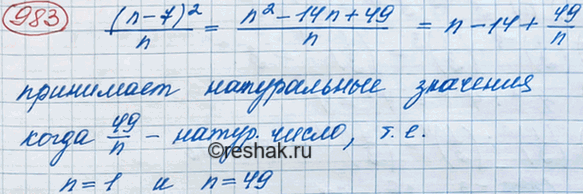 983 (n-7)²/n = n²-14n+49/n = n-14+49/n
принимает натуральные значения
когда 49/n - натур. число, т.е.
©reshak.ru
n=1 и n=49